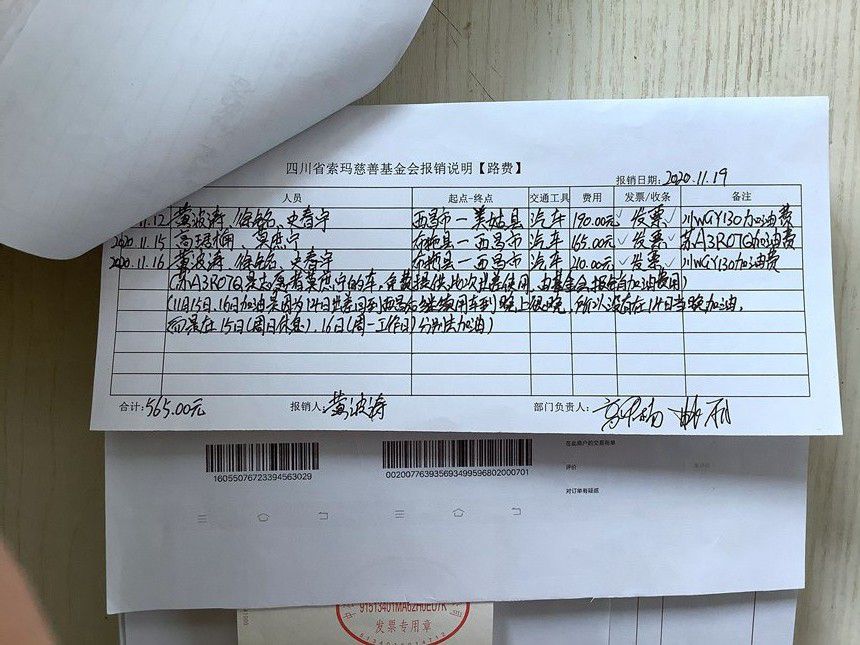 四川省索玛慈善基金会报销说明【路费】
报销日期：2020.11.19
人员 起点-终点 交通工具 费用 发票/收条 备注
11.12 黄波涛 徐铭 史春宇 西昌市—美姑县 汽车 190.00元 ✓发票✓ 川WGY130加油费
2020.11.15 高 布拖县—西昌市 汽车 165.00元 ✓发票✓ 苏A3R0TQ加油费
2020.11.16 黄波涛 徐铭 史春宇 布拖县—西昌市 汽车 210.00元 ✓发票✓ 川WGY130加油费
(苏A3R0TQ是志愿者吴 宁的车，免费提供此次出差使用，由基金会报销加油费用)
(11月15日、16日加油是因为14日出差回到西昌后继续用车到晚上很晚，所以没有在14日当晚加油，
而是在15日(周日休息)、16日(周一工作日)分别去加油)
合计：565.00元 报销人：黄波涛 部门负责人：
在此商户的交易账单
评价
对订单有疑惑
16055076723394563029
00200776393569349959680200070​1
91513401MA62H0EU7K
发票专用章